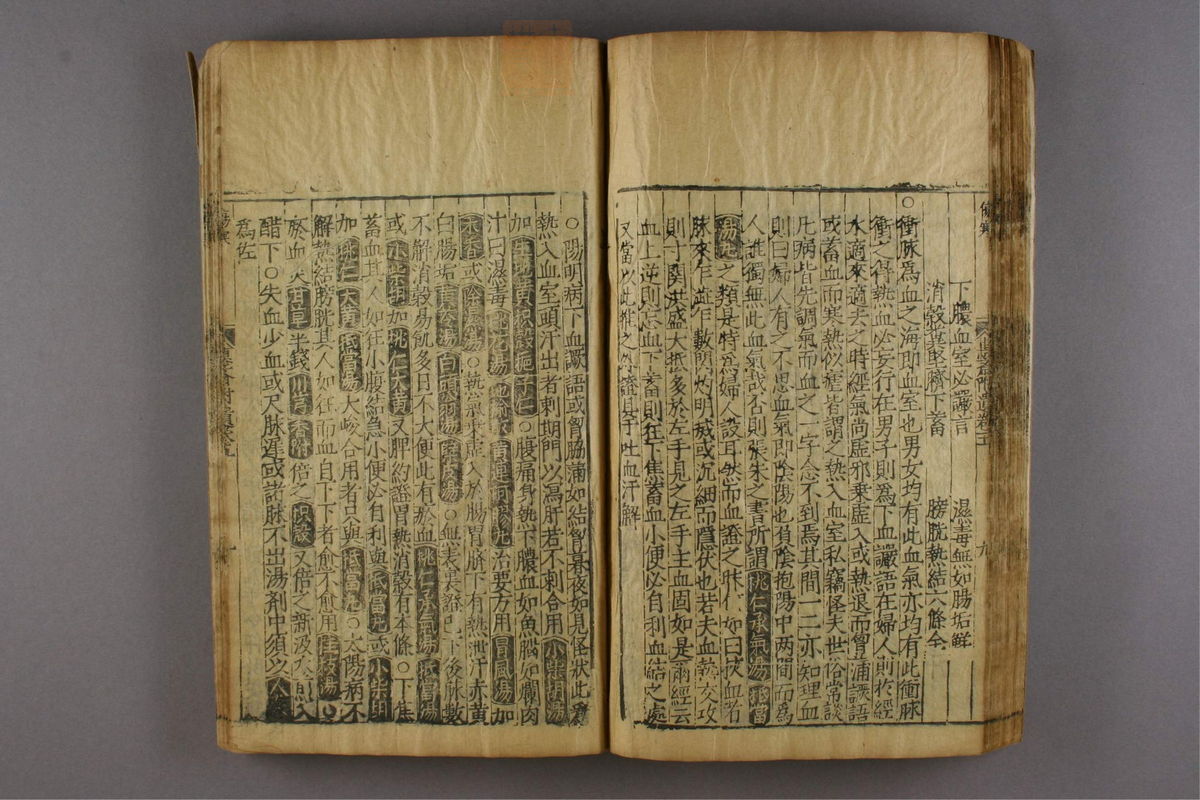 傷寒
下膿血室必譫言　濕毒無如腸垢鮮
消穀聚臍下蓄　膀胱熱結六條全
○衝脉爲血之海即血室也男女均有此血氣亦均有此衝脉
衝之得熱血必妄行在男子則爲下血譫語在婦人則於經
水適來適去之時經氣尚虛邪乗虛入或熱退而曾滿譫語
或蓄血而寒熱似瘧皆謂之熱入血室私竊怪夫世俗常談
凡病皆先調氣而血之一字念不到焉其間一二亦知理血
則曰婦人有之不思血氣即陰陽也負陰抱陽中两間而爲
人誰獨無此血氣哉否則張朱之書所謂桃仁承氣湯抵當
湯丸之類是特爲婦人設耳然而血證之脉代如曰挾血者
脉來乍乍數閃灼明滅或沉細而隱伏也若夫血熱交攻
則寸関洪盛大抵多於左手見之左手主血固如是爾經云
血上逆則忘血下蓄則狂下焦蓄血小便必自利血結之處
又當以此推之證具于吐血汗解
九
○陽明病下血譫語或胷脇滿如結胷暮夜如見怪狀此爲
熱入血室頭汗出者刺期門以瀉肝若不刺合用小柴胡湯
加生地黄枳殻梔子仁○腹痛身熱下膿血如魚腦如爛肉
汁曰濕毒桃花湯地榆散黄連阿膠丸治要方用胃風湯加
木香或除濕湯○熱氣乗虛入於腸胃臍下有熱泄汗赤黄
白腸垢黄芩湯白頭翁湯蘗皮湯○無表裏證已下後脉數
不解消穀易飢多日不大便此有瘀血桃仁承氣湯抵當湯
或小柴胡加桃仁大黄又脾約證胃熱消穀有本條○下焦
蓄血其人如狂小腹結急小便必自利與抵當丸或小柴胡
加桃仁大黄抵當湯大峻合用者只與抵當丸○太陽病不
解熱結膀胱其人如狂而血自下下者愈不愈用桂枝湯
瘀血甘草半錢川芎香附倍之枳殻又倍之新汲水煎入
醋下○失血少血或尺脉遲或諸脉不出湯劑中須以人參
爲佐